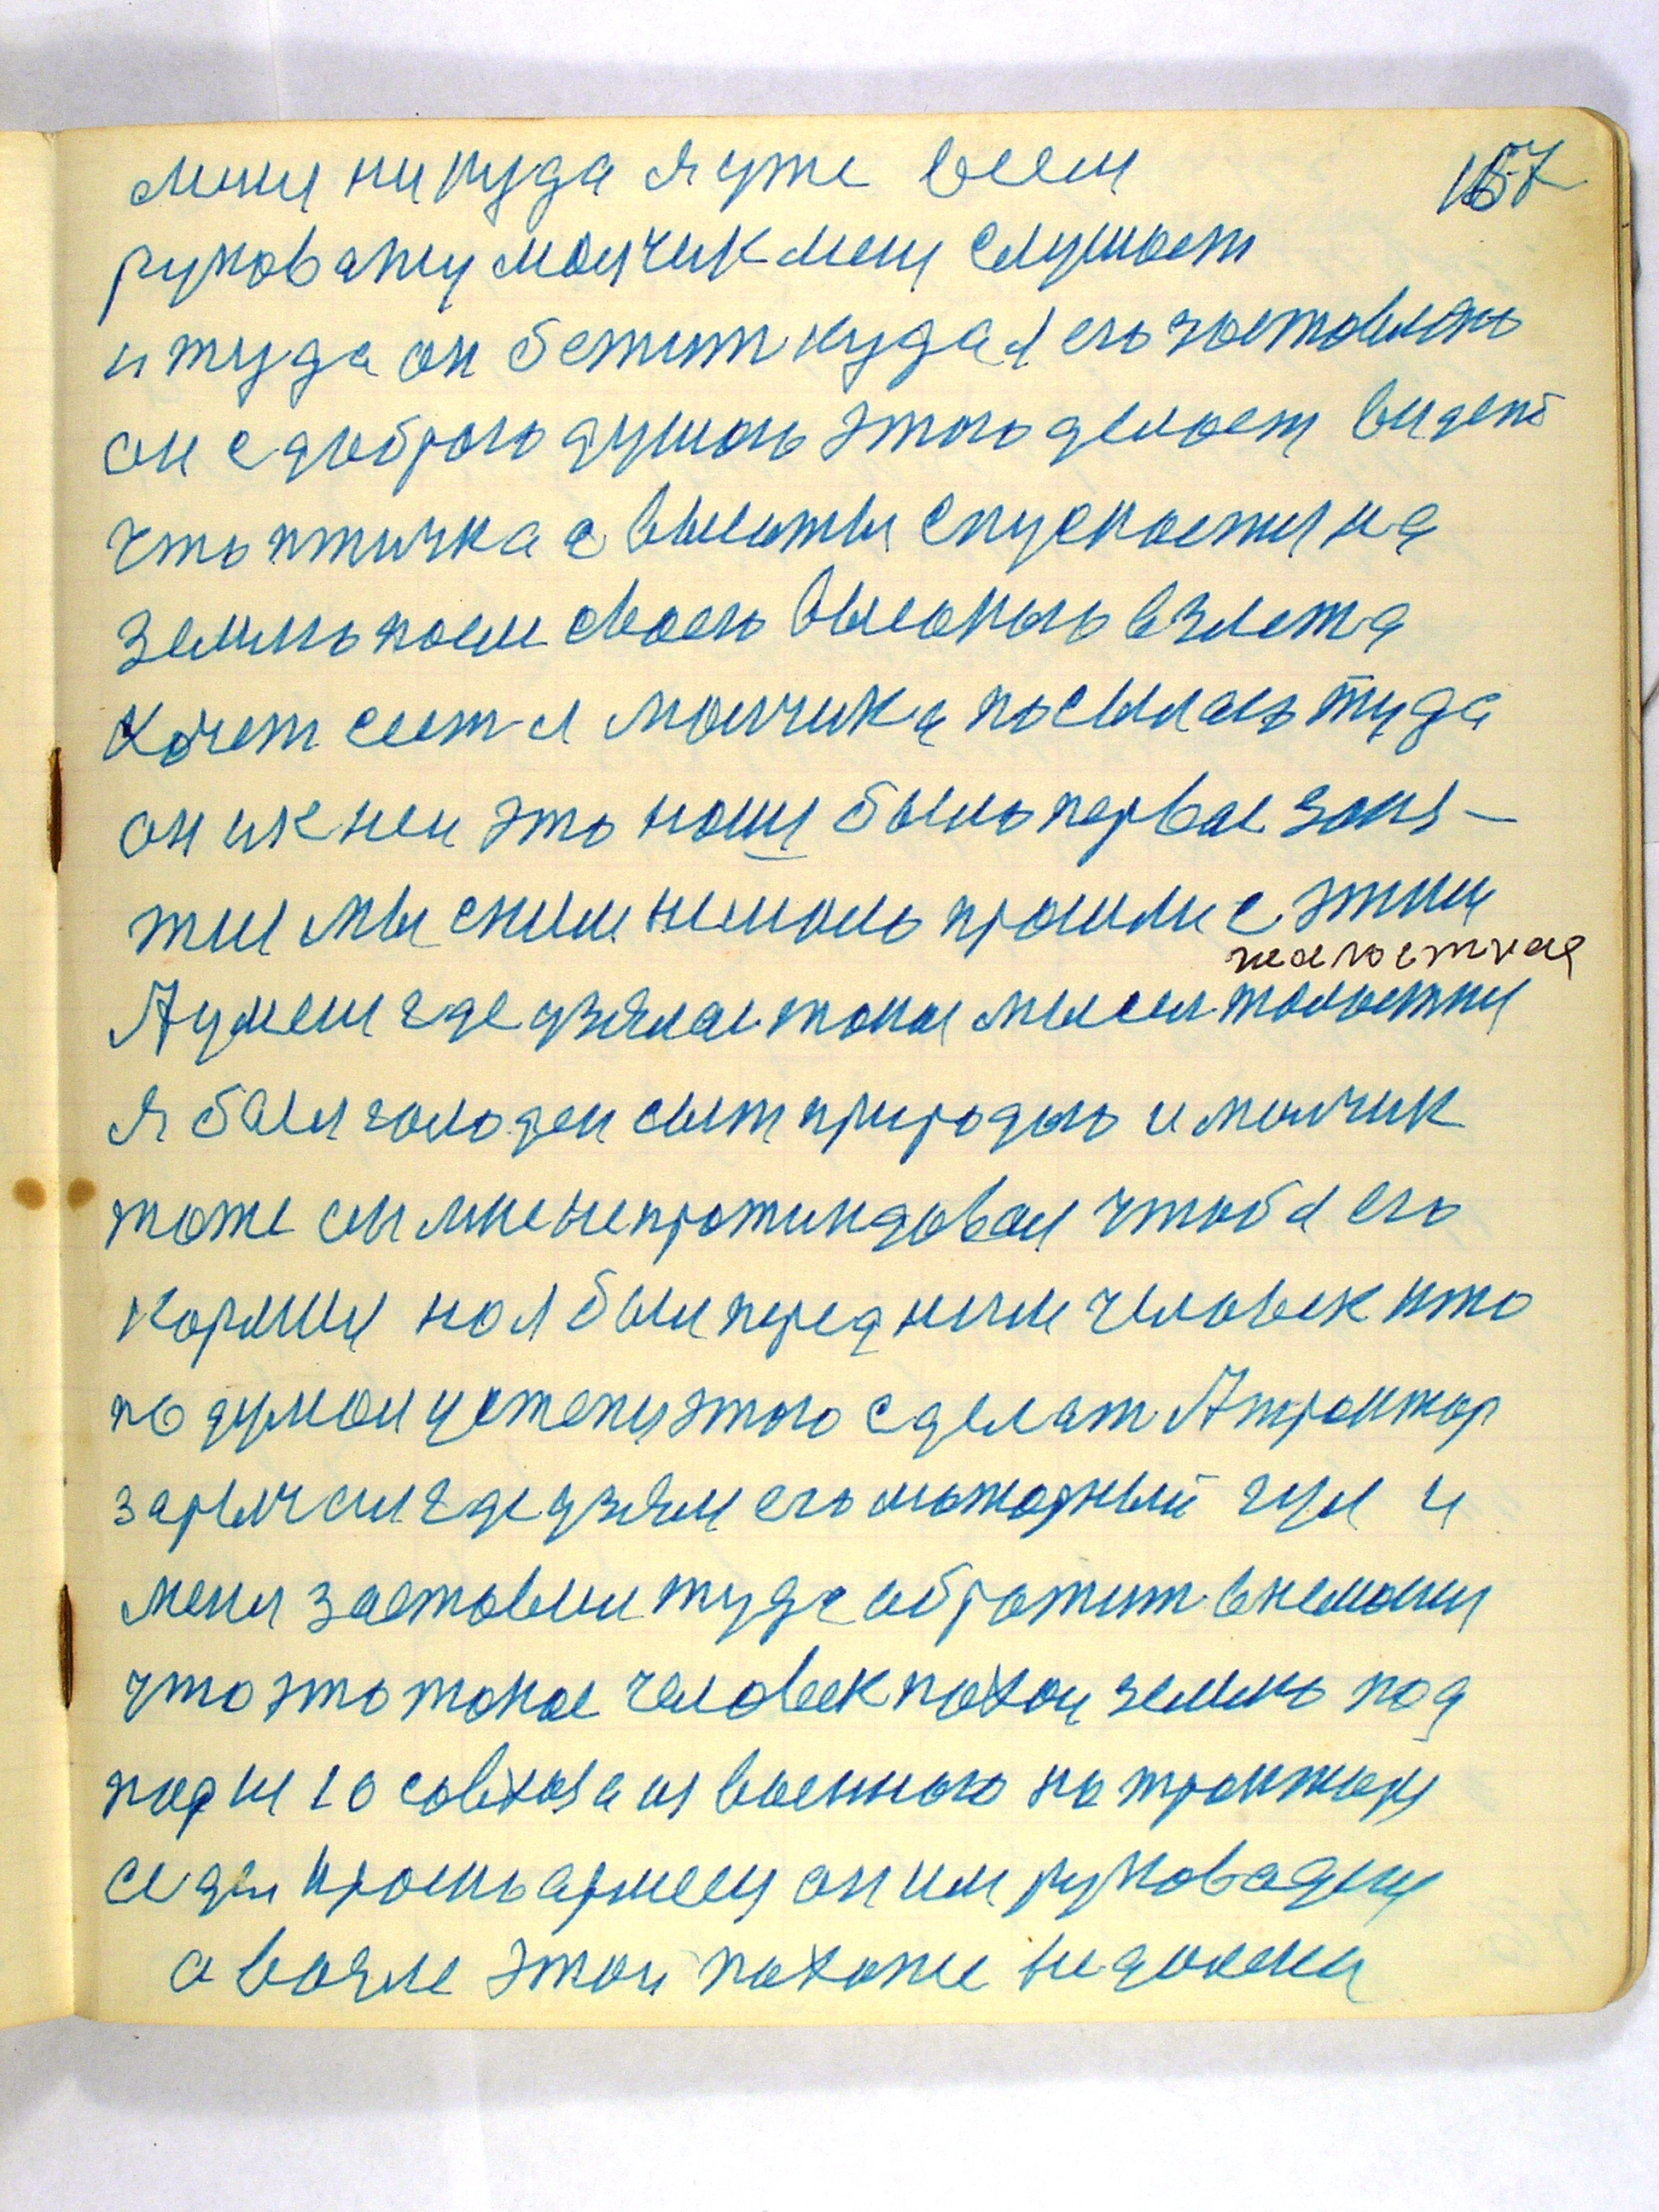 157
мени никуда я уже всем
руковажу малчик мени слушает
и туда он бежит куда я его заставляю
он с доброю душою этого делает видет
что птичка с высоты спускается на
землю посли своего высокого взлета
хочет сест я малчика посылаю туда
он и к ней это наши было первае заня-
тие мы сним немало прошли с этим
жалостная
А у мени где узялас такая мысел жалостни
я был голоден сыт природою и малчик
тоже он мне не протиндовал чтоб я его
кормил но я был перед ним человек кто
подумал у степи этого сделат А трактор
зарычал где узялси его моторный гул и
меня заставил туда обратит внемания
что это такое человек пахал землю под
под ни го совхоза из военного на тракторе
сидел красноармеец он им руководил
а возле этой пахоте недалеки